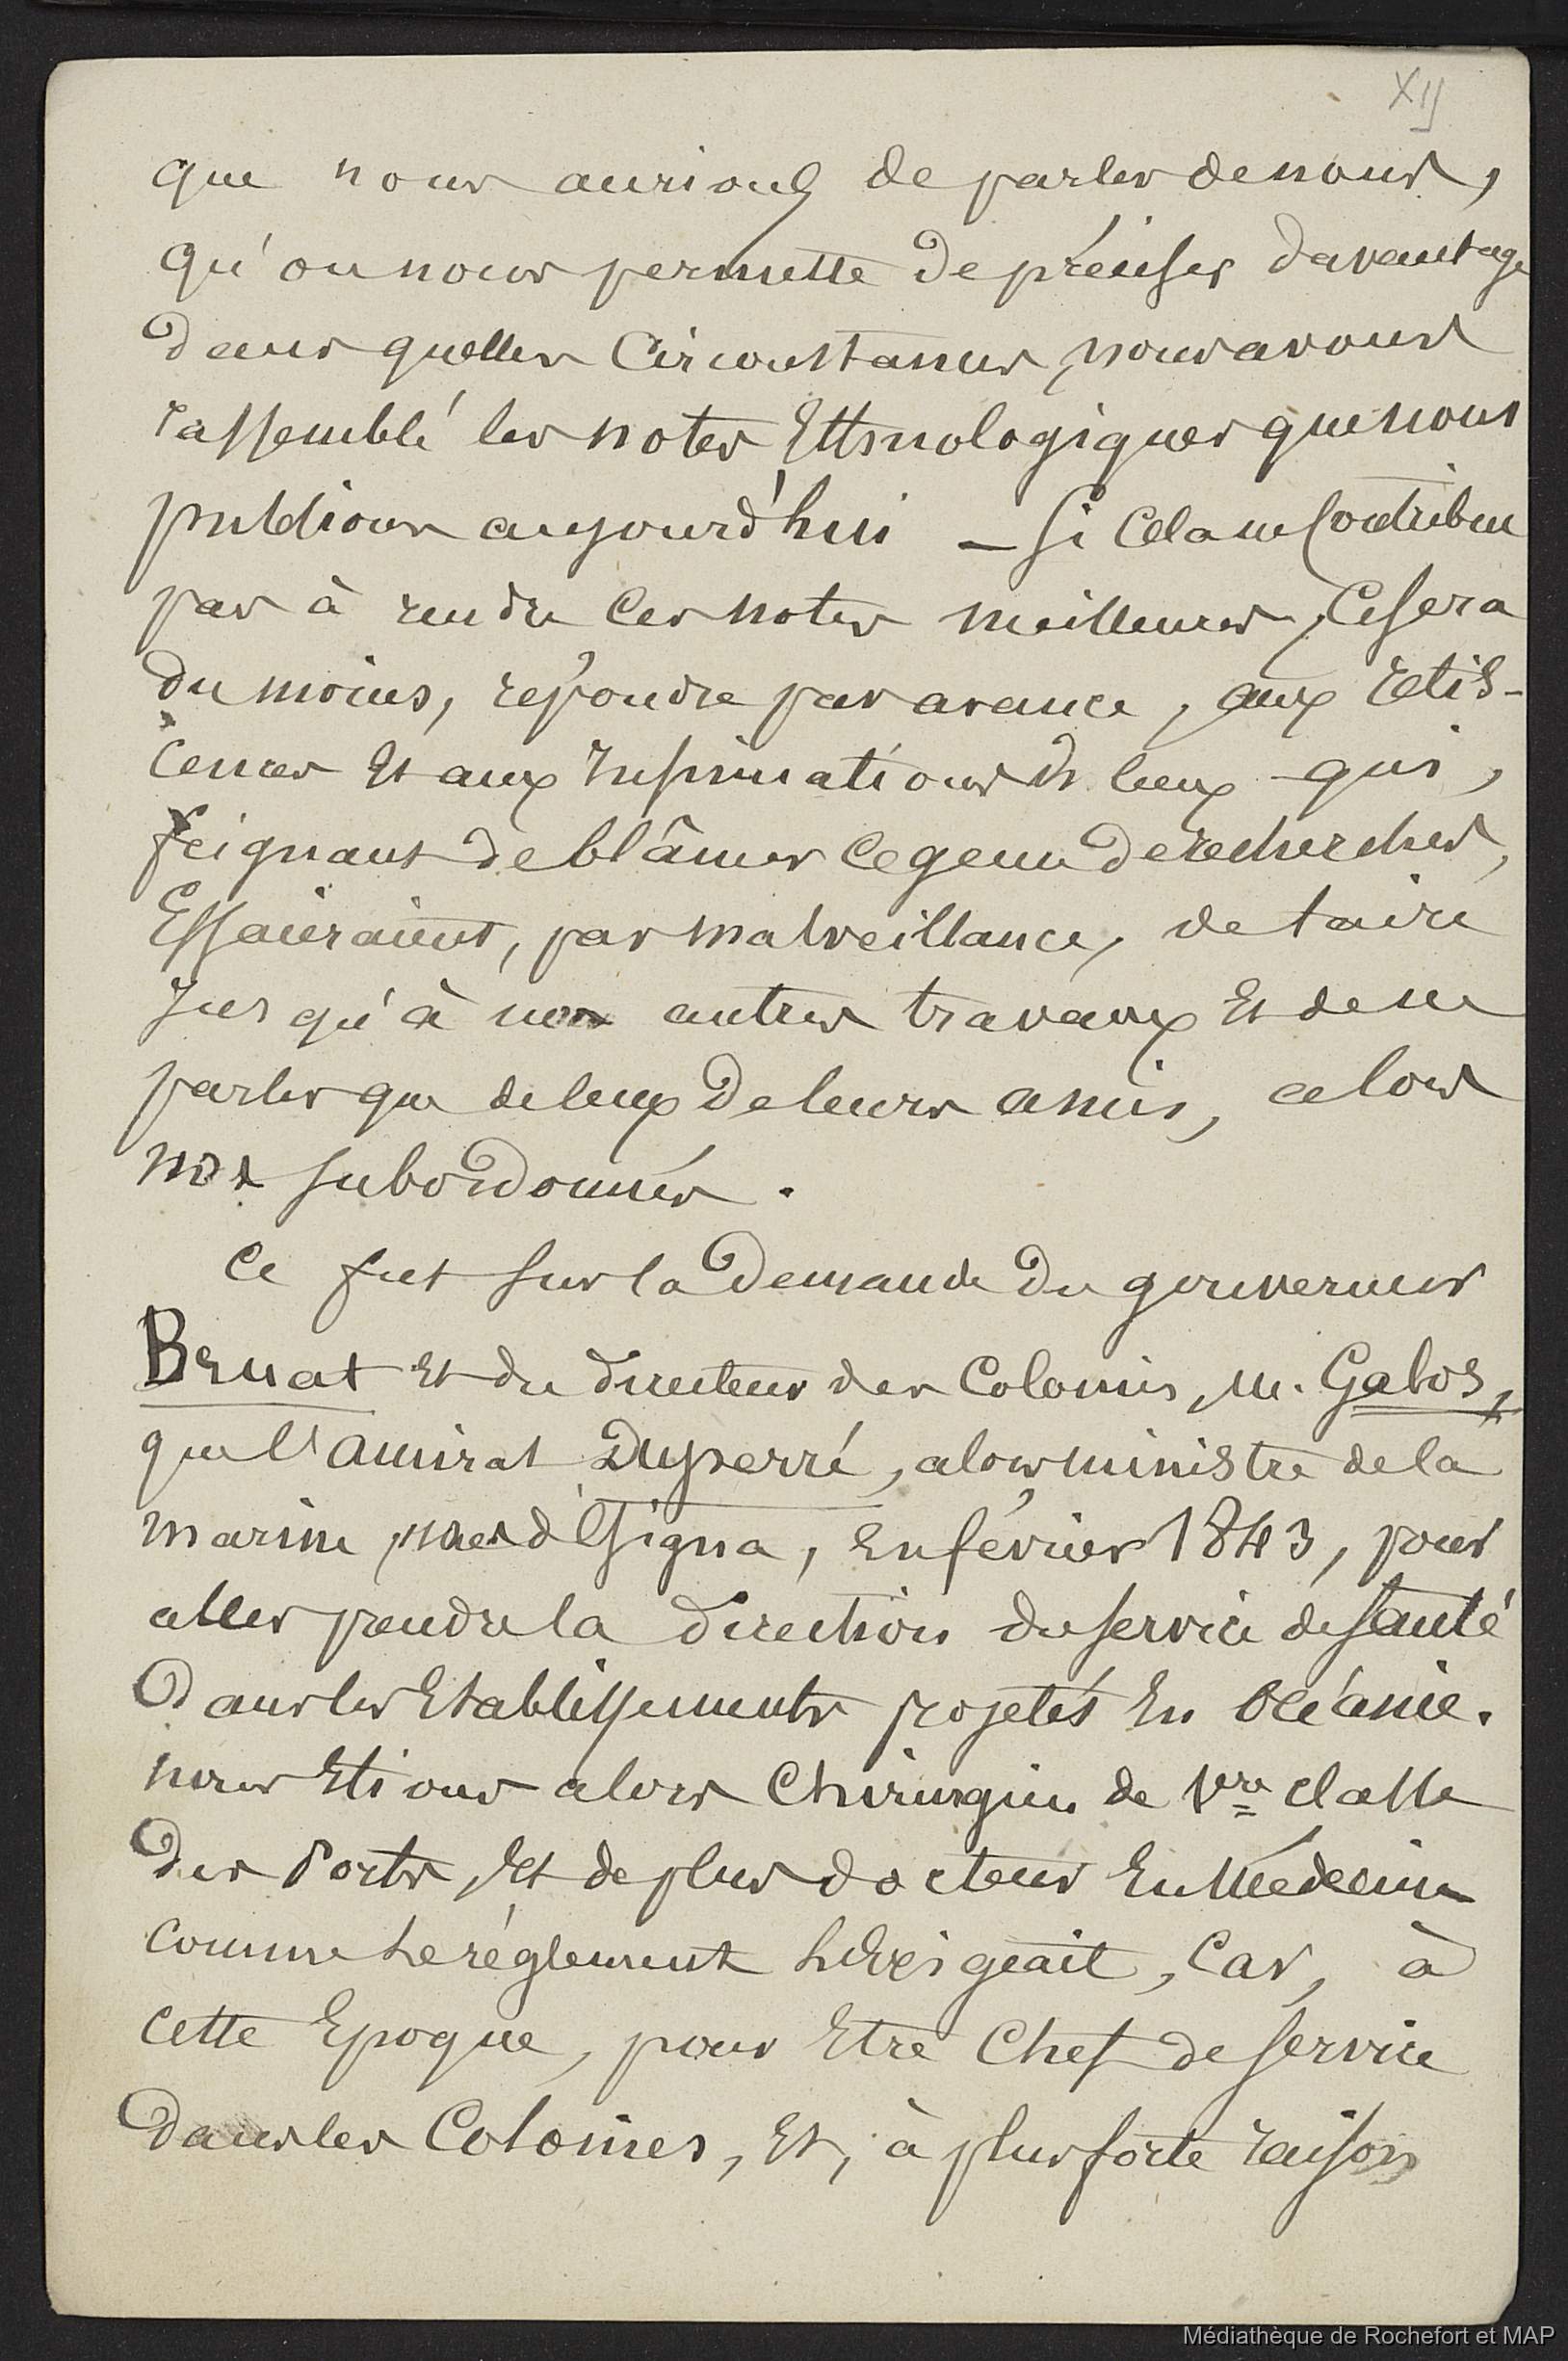 XIJ
que nous aurions de parler de nous,
qu'on nous permette de préciser davantage
dans quelles Circonstances, nous avons
rassemblé les notes Ethnologiques que nous
publions aujourd'hui – Si Cela ne Contribue
pas à rendre Ces notes meilleures, Ce sera
du moins, répondre par avance, aux rétis-
cences Et aux Insinuations de Ceux qui,
feignant de blâmer Ce genre de recherches,
Essaieraient, par malveillance, de taire
Jusqu'à nos autres travaux Et de ne
parler que de Ceux de leurs amis, alors
nos subordonnés.
Ce fut sur la Demande du gouverneur
Bruat Et du directeur des Colonies, M. Galos,
que l'amiral Duperré, alors ministre de la
marine, nous désigna, En février 1843, pour
aller prendre la direction du service de santé
dans les Etablissements projetés En Océanie.
nous Etions alors Chirurgien de 1re classe
des Ports, Et de plus docteur En Médecine
comme le réglement l'Exigeait, Car, à
cette Epoque, pour Etre Chef de service
dans les Colonies, Et, à plus forte raison
Médiathèque de Rochefort et MAP